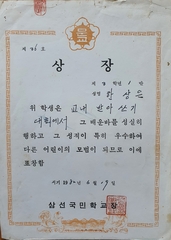 제 26 호
상 장
제 3 학년 1 반
성명 하상은
위 학생은 교내 받아쓰기
대회에서 그 배운바를 성실히
행하고 그 성적이 특히 우수하여
다른 어린이의 모범이 되므로 이에
표창함
서기 1980년 6월 19일
삼선국민학교장